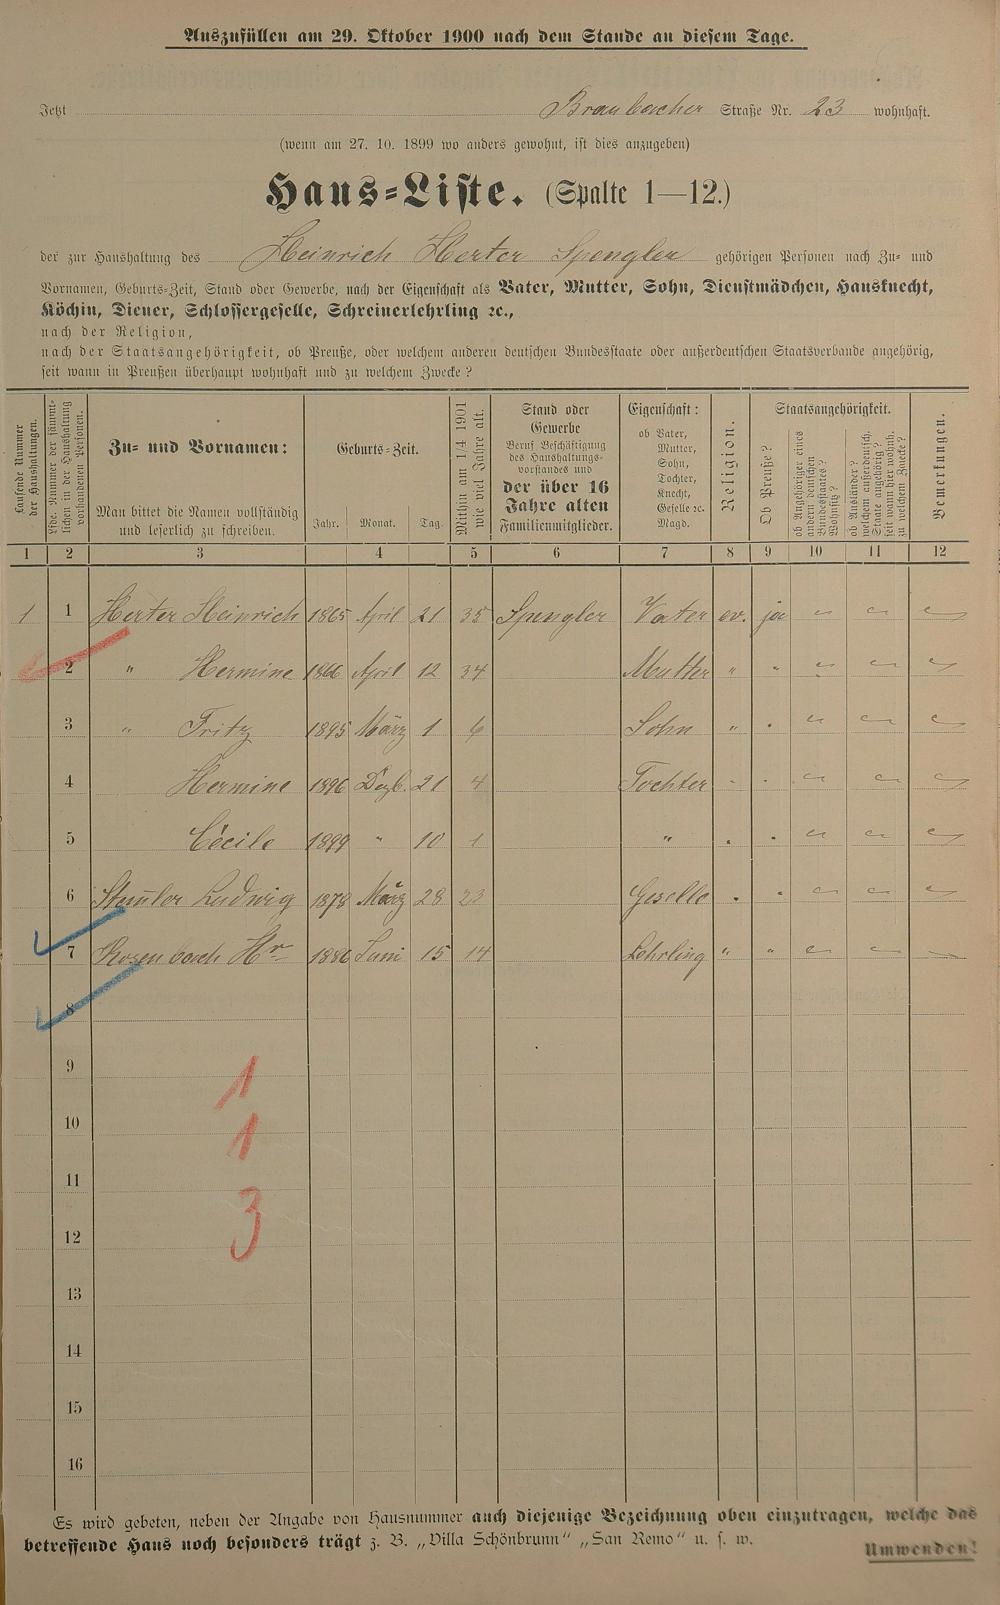 Auszufüllen am 29. Oktober 1900 nach dem Stande an diesem Tage.
Jetzt Braubacher Straße Nr. 23 wohnhaft.
(wenn am 27. 10. 1899 wo anders gewohnt, ist dies anzugeben)
Haus-Liste. (Spalte 1—12.)
der zur Haushaltung des Heinrich Herter Spengler gehörigen Personen nach Zu- und
Vornamen, Geburts-Zeit, Stand oder Gewerbe, nach der Eigenschaft als Vater, Mutter, Sohn, Dienstmädchen, Hausknecht,
Köchin, Diener, Schlossergeselle, Schreinerlehrling ꝛc.,
nach der Religion,
nach der Staatsangehörigkeit, ob Preuße, oder welchem anderen deutschen Bundesstaate oder außerdeutschen Staatsverbande angehörig,
seit wann in Preußen überhaupt wohnhaft und zu welchem Zwecke?
Laufende Nummer
der Haushaltungen.
Lfde. Nummer der sämmt-
lichen in der Haushaltung
vorhandenen Personen.
Zu- und Vornamen:
Man bittet die Namen vollständig
und leserlich zu schreiben.
Geburts-Zeit.
Jahr. Monat. Tag.
Mithin am 1/4 1901
wie viel Jahre alt.
Stand oder
Gewerbe
Beruf Beschäftigung
des Haushaltungs-
vorstandes und
der über 16
Jahre alten
Familienmitglieder.
Eigenschaft:
ob Vater,
Mutter,
Sohn,
Tochter,
Knecht,
Geselle ꝛc.
Magd.
Religion.
Staatsangehörigkeit.
Ob Preuße?
ob Angehöriger eines
andern deutschen
Bundesstaates?
Wohnsitz?
ob Ausländer?
welchem außerdeutsch.
Staate angehörig?
seit wann hier wohnh.
zu welchem Zwecke?
Bemerkungen.
1 2 3 4 5 6 7 8 9 10 11 12
1 1 Herter Heinrich 1865 April 21 35 Spengler Vater ev. ja
2 " Hermine 1866 April 12 34 Mutter " "
3 " Fritz 1895 März 1 6 Sohn " "
4 Hermine 1896 Dezb. 21 4 Tochter
5 Cécile 1899 " 10 1 "
6 Stem̅ler Ludwig 1878 März 28 23 Geselle
7 Rosenbach Hr 1886 Juni 15 14 Lehrling " "
8
9
1
10
1
11
3
12
13
14
15
16
Es wird gebeten, neben der Angabe von Hausnummer auch diejenige Bezeichnung oben einzutragen, welche das
betreffende Haus noch besonders trägt z. B. „Villa Schönbrunn" „San Remo" u. s. w.
Umwenden!